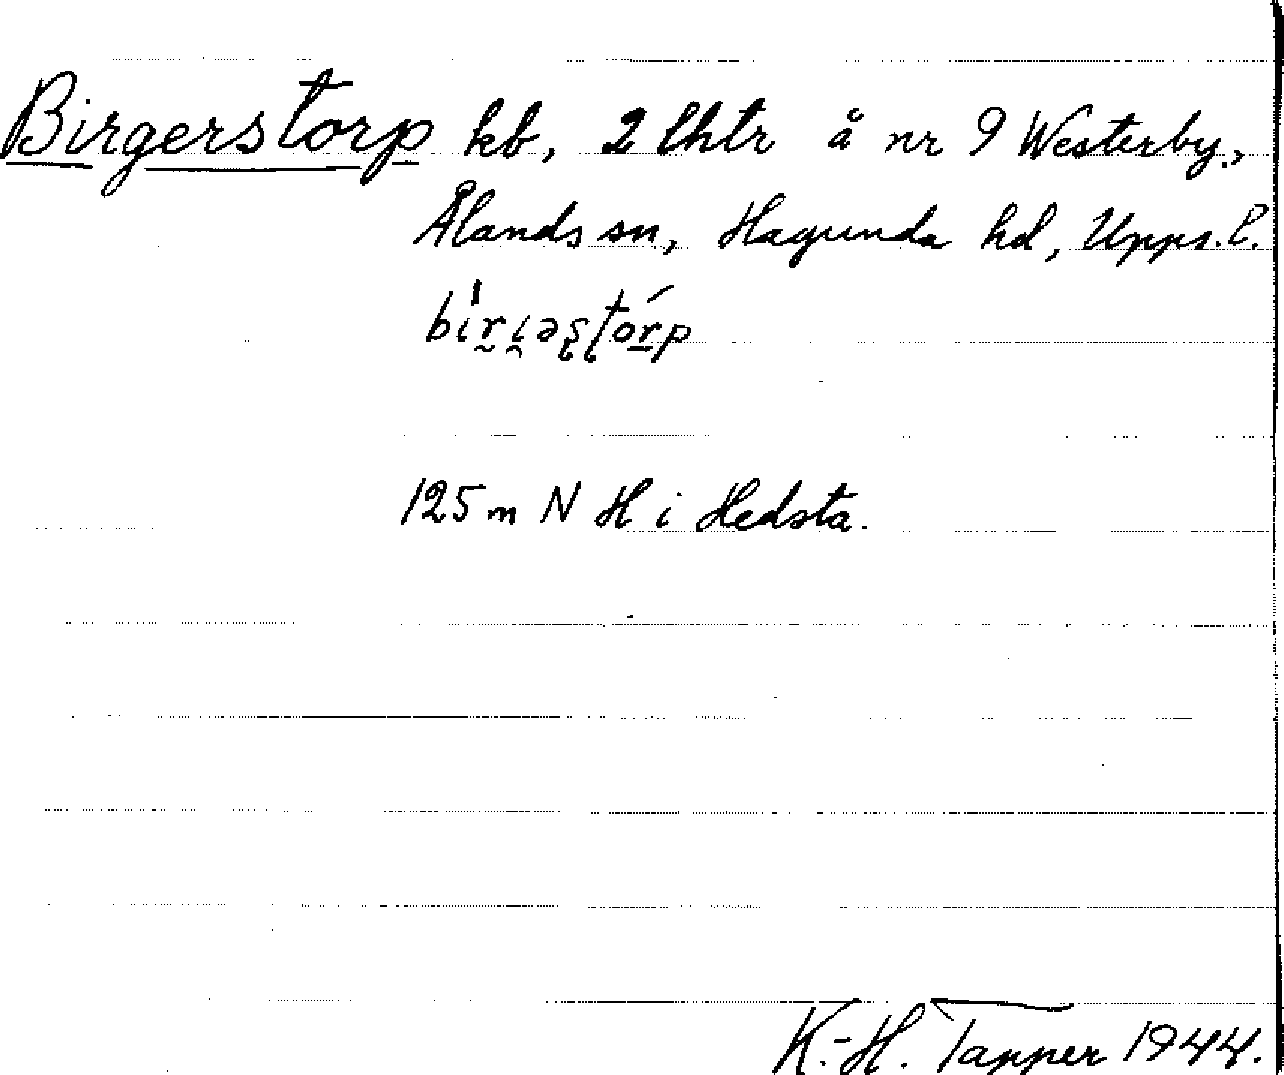 Birgerstorp kb, 2 lhtr å nr 9 Westerby,
Ålands sn, Hagunda hd, Upps. l.
125 m N H i Hedsta.
K.-H. Tapper 1944.